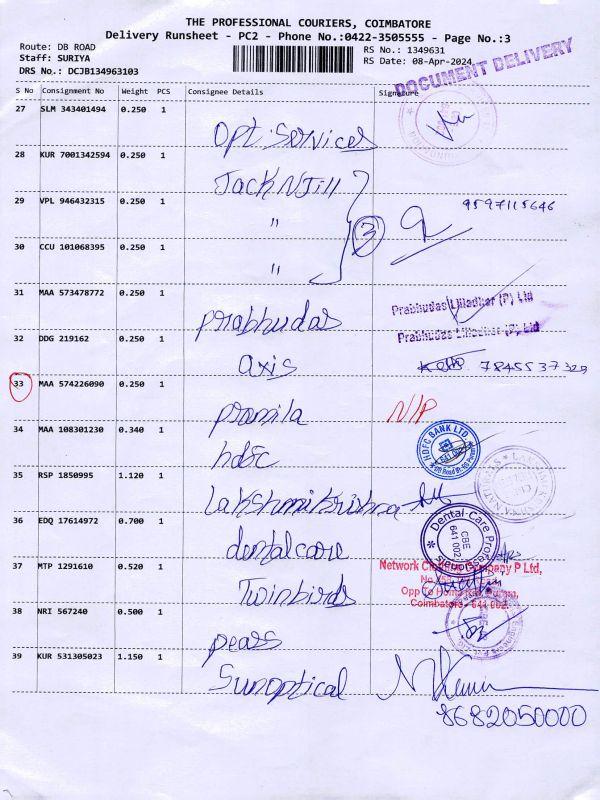 THE PROFESSIONAL COURIERS, COIMBATORE
Delivery Runsheet - PC2 - Phone No.:0422-3505555 - Page No.:3
Route: DB ROAD
RS No.: 1349631
Staff: SURIYA
RS Date: 08-Apr-2024
DRS No.: DCJB134963103
DOCUMENT DELIVERY
S No Consignment No Weight PCS Consignee Details Signature
27 SLM 343401494 0.250 1
Opt. Services
28 KUR 7001342594 0.250 1
Jack N Jill
29 VPL 946432315 0.250 1
9597115646
" 3
30 CCU 101068395 0.250 1
"
31 MAA 573478772 0.250 1
Prabhudas Lilladher (P) Ltd
prabhudas
32 DDG 219162 0.250 1
Prabhudas Lilladher (P) Ltd
axis 7845537329
33 MAA 574226090 0.250 1
promila N/P
34 MAA 108301230 0.340 1
HDFC BANK LTD.
hdfc
35 RSP 1850995 1.120 1
Lakshmikrishna
36 EDQ 17614972 0.700 1
Dental Care
CBE
641 002
dentalcare
37 MTP 1291610 0.520 1
Network Clothing Company P Ltd,
Twinbirds
Coimbatore - 641 002.
38 NRI 567240 0.500 1
pears
39 KUR 531305023 1.150 1
Sunoptical
8682050000